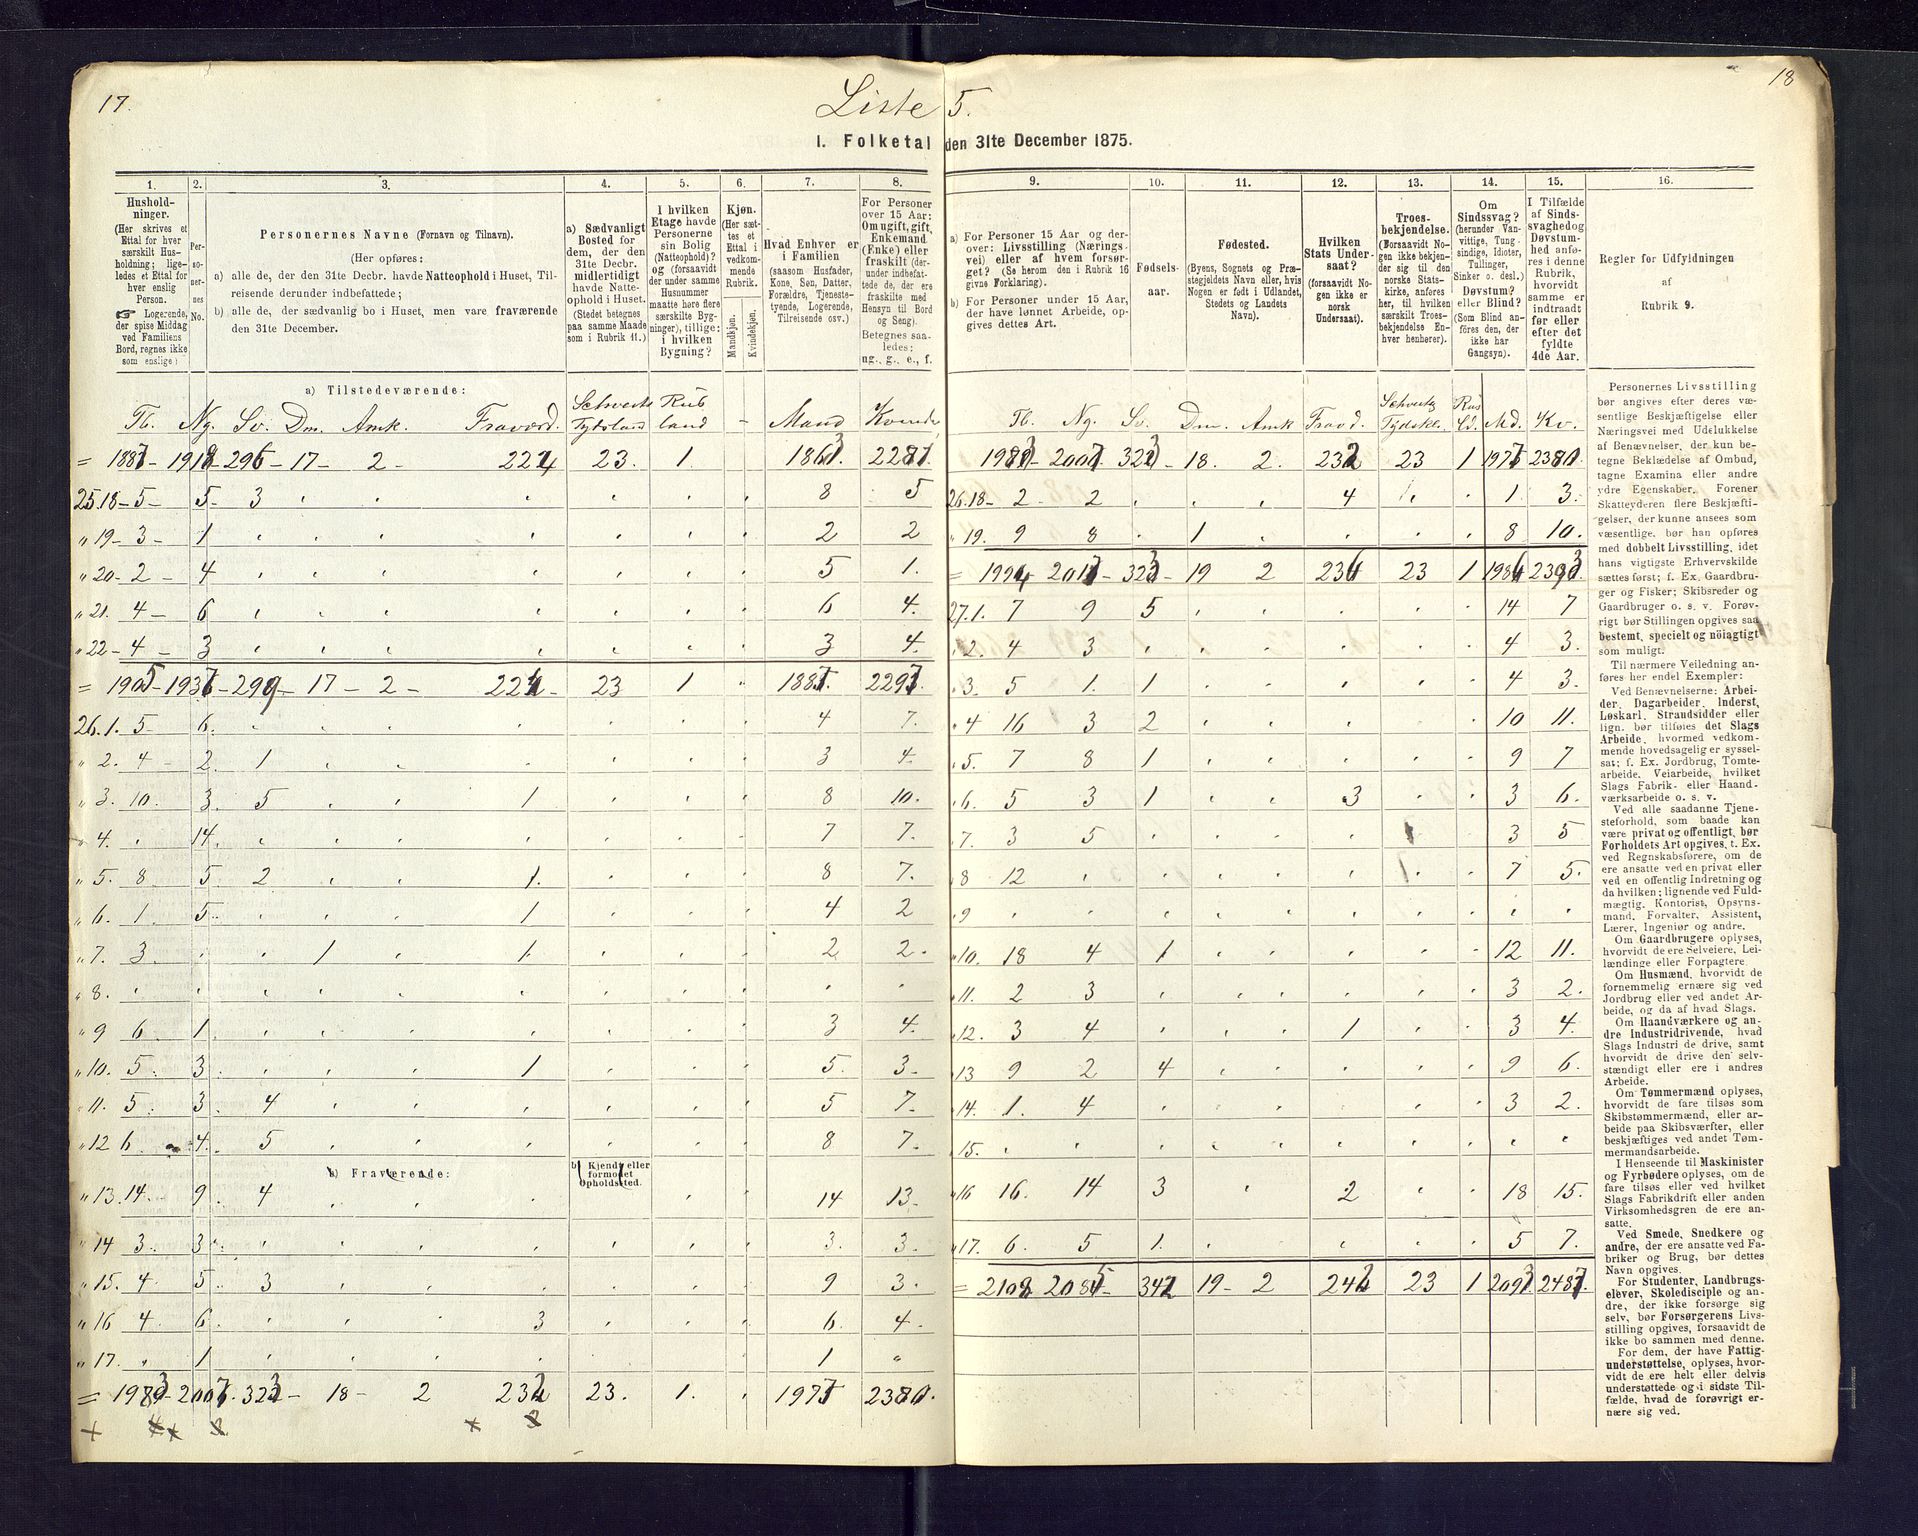 17.
18
Liste 5.
I. Folketal den 31te December 1875.
1. 2. 3. 4. 5. 6. 7. 8. 9. 10. 11. 12. 13. 14. 15. 16.
Hushold-
ninger.
(Her skrives et
Ettal for hver
særskilt Hus-
holdning; lige-
ledes et Ettal for
hver enslig
Person.
☞ Logerende,
der spise Middag
ved Familiens
Bord, regnes ikke
som enslige.)
Per-
so-
ner-
nes
No.
Personernes Navne (Fornavn og Tilnavn).
(Her opføres:
a) alle de, der den 31te Decbr. havde Natteophold i Huset, Til-
reisende derunder indbefattede;
b) alle de, der sædvanlig bo i Huset, men vare fraværende
den 31te December.
a) Sædvanligt
Bosted for
dem, der den
31te Decbr.
midlertidigt
havde Natte-
ophold i Huset.
(Stedet betegnes
paa samme Maade
som i Rubrik 11.)
I hvilken
Etage havde
Personerne
sin Bolig
(Natteophold)?
og (forsaavidt
der under samme
Husnummer
maatte høre flere
særskilte Byg-
ninger), tillige:
i hvilken
Bygning?
Kjøn.
(Her sæt-
tes et
Ettal i
vedkom-
mende
Rubrik.
Mandkjøn.
Kvindekjøn.
Hvad Enhver er
i Familien
(saasom Husfader,
Kone, Søn, Datter,
Forældre, Tjeneste-
tyende, Logerende,
Tilreisende osv.)
For Personer
over 15 Aar:
Om ugift, gift,
Enkemand
(Enke) eller
fraskilt (der-
under indbefat-
tede de, der ere
fraskilte med
Hensyn til Bord
og Seng).
Betegnes saa-
ledes:
ug., g., e., f.
a) For Personer 15 Aar og der-
over: Livsstilling (Nærings-
vei) eller af hvem forsør-
get? (Se herom den i Rubrik 16
givne Forklaring).
b) For Personer under 15 Aar,
der have lønnet Arbeide, op-
gives dettes Art.
Fødsels-
aar.
Fødested.
(Byens, Sognets og Præ-
stegjeldets Navn eller, hvis
Nogen er født i Udlandet,
Stedets og Landets
Navn).
Hvilken
Stats Under-
saat?
(forsaavidt No-
gen ikke er
norsk
Undersaat).
Troes-
bekjendelse.
(Forsaavidt No-
gen ikke bekjen-
der sig til den
norske Stats-
kirke, anføres
her, til hvilken
særskilt Troes-
bekjendelse En-
hver henhører).
Om
Sindssvag?
(herunder Van-
vittige, Tung-
sindige, Idioter,
Tullinger,
Sinker o. desl.)
Døvstum?
eller Blind?
(Som Blind an-
føres den, der
ikke har
Gangsyn).
I Tilfælde
af Sinds-
svaghed og
Døvstum-
hed anfø-
res i denne
Rubrik,
hvorvidt
samme er
indtraadt
før eller
efter det
fyldte
4de Aar.
Regler for Udfyldningen
af
Rubrik 9.
a) Tilstedeværende:
Ng. Sv. Dm. Amk. Fraværd. Rus land - Mand Kvinde
Ng. Sv. Dm Amk Md. Kv.
23. 1.
18. 2. 23 1
25.18 - 5 - 5 - 3 8 5
26.18 - 2 - 2 4 1 3.
" 19 - 3 - 1 2 2
" 19. 9 8 1 8 10.
" 20 - 2 - 4 5 1.
19 2 23 1
" 21. 4 - 6 6 4.
27.1. 7 9 5 14 7
" 22 - 4 - 3 3 4.
" 2. 4 3 4 3.
17 - 2 - 23 1
" 3. 5 1. 1 4 3.
26.1. 5 6. 4 7.
" 4 16 3 2 10 11.
" 2. 4 - 2. 1 3 4.
" 5. 7 8 1 9 7
" 3. 10. 3. 5 1 8 10.
" 6. 5 3 1 3 3 6.
" 4. 14. 7 7.
" 7. 3 5 3 5
" 5. 8 5. 2 1. 8 7.
" 8 12 7 5.
" 6. 1. 5. 1 4 2
" 9
" 7. 3. 1 1. 2 2.
" 10. 18 4 1 12 11.
" 8.
" 11. 2 3 3 2.
" 9 6. 1. 3 4.
" 12. 3 4 1 3 4.
" 10. 5. 3. 1 5. 3.
" 13 9 2 4 9 6.
" 11. 5 3. 4 5 7.
" 14. 1. 4 3 2.
" 12 6. 4. 5 8 7.
" 15.
b) Fraværende:
b) Kjendt eller
formodet
Opholdssted.
" 13. 14. 9. 4 14 13.
" 16 16. 14 3 2 18 15.
" 14 3. 3. 3. 3.
" 17. 6. 5 1. 5 7.
" 15. 4. 5. 3 9 3.
19 - 2 23 1
" 16 4. 6. 3 6. 4.
" 17. " 1 1 "
18 - 2 23. 1.
Personernes Livsstilling
bør angives efter deres væ-
sentlige Beskjæftigelse eller
Næringsvei med Udelukkelse
af Benævnelser, der kun be-
tegne Beklædelse af Ombud,
tagne Examina eller andre
ydre Egenskaber. Forener
Skatteyderen flere Beskjæfti-
gelser, der kunne ansees som
væsentlige, bør han opføres
med dobbelt Livsstilling, idet
hans vigtigste Erhvervskilde
sættes først; f. Ex. Gaardbru-
ger og Fisker; Skibsreder og
Gaardbruger o. s. v. Forøv-
rigt bør Stillingen opgives saa
bestemt, specielt og nöiagtigt
som muligt.
Til nærmere Veiledning an-
føres her endel Exempler:
Ved Benævnelserne: Arbei-
der, Dagarbeider, Inderst,
Løskarl, Strandsidder eller
lign. bør tilføies det Slags
Arbeide, hvormed vedkom-
mende hovedsagelig er syssel-
sat; f. Ex. Jordbrug, Tomte-
arbeide, Veiarbeide, hvilket
Slags Fabrik- eller Haand-
værksarbeide o. s. v.
Ved alle saadanne Tjene-
steforhold, som baade kan
være privat og offentligt, bør
Forholdets Art opgives, t. Ex.
ved Regnskabsførere, om de
ere ansatte ved en privat eller
ved en offentlig Indretning og
da hvilken; lignende ved Fuld-
mægtig, Kontorist, Opsyns-
mand, Forvalter, Assistent,
Lærer, Ingeniør og andre.
Om Gaardbrugere oplyses,
hvorvidt de ere Selveiere, Lei-
lændinge eller Forpagtere.
Om Husmænd, hvorvidt de
fornemmelig ernære sig ved
Jordbrug eller ved andet Ar-
beide, og da af hvad Slags.
Om Haandværkere og an-
dre Industridrivende, hvad
Slags Industri de drive, samt
hvorvidt de drive den selv-
stændigt eller ere i andres
Arbeide.
Om Tømmermænd oplyses,
hvorvidt de fare tilsøs som
Skibstømmermænd, eller ar-
beide paa Skibsværfter, eller
beskjæftiges ved andet Tøm-
mermandsarbeide.
I Henseende til Maskinister
og Fyrbødere oplyses, om de
fare tilsøs eller ved hvilket
Slags Fabrikdrift eller anden
Virksomhedsgren de ere an-
satte.
Ved Smede, Snedkere og
andre, der ere ansatte ved Fa-
briker og Brug, bør dettes
Navn opgives.
For Studenter, Landbrugs-
elever, Skoledisciple og an-
dre, der ikke forsørge sig
selv, bør Forsørgerens Livs-
stilling opgives, forsaavidt de
ikke bo sammen med denne.
For dem, der have Fattig-
understøttelse, oplyses, hvor-
vidt de ere helt eller delvis
understøttede og i sidste Til-
fælde, hvad de forøvrigt er-
nære sig ved.